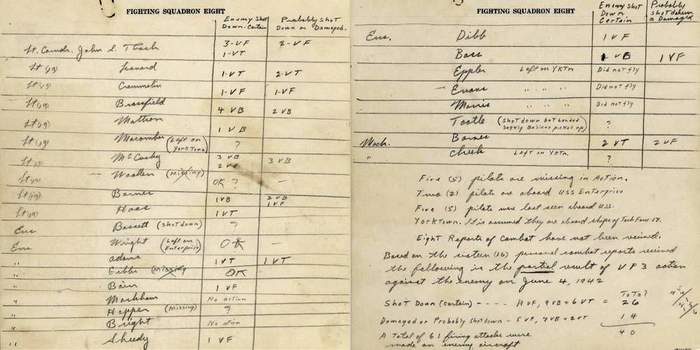 FIGHTING SQUADRON EIGHT
Enemy Shot Down-Certain
Probably Shot Down or Damaged.
Lt. Comdr. John S. Thach 3-VF 2-VF
1-VT
Lt (jg) Leonard 1-VT 2-VT
Lt (jg) Crommelin 1-VF 1-VF
Lt (jg) Brassfield 4 VB 2 VB
Lt (jg) Mattson 1 VB
Lt (jg) Macomber (Left on Yorktown) ?
Lt (jg) McCuskey 3 VB 3 VB
2 VF
Lt (jg) Woollen (Missing) OK ? —
Lt (jg) Barnes 1 VB 2 VB
1 VF
Lt (jg) Haas 1 VT
Ens Bassett (Shot down) ?
Ens Wright (Left on Enterprise) OK —
" Adams 1 VT 1 VT
" Gibbs (Missing) OK
" Bain 1 VF
" Markham No action
" Hopper (Missing) ?
" Bright No action
" Sheedy 1 VF
FIGHTING SQUADRON EIGHT
Enemy Shot Down Certain
Probably shot down or Damaged
Ens. Dibb 1 VF
Bass 1 VB 1 VF
Eppler Left on YKTN Did not fly
Evans " " " Did not fly
Morris " " " Did not fly
Tootle (Shot down but landed safely Believe picked up) ?
Mach. Barnes 2 VT 2 VF
" Cheek Left on YKTN. ?
Five (5) pilots are missing in Action.
Two (2) pilots are aboard USS Enterprise
Five (5) pilots was last seen aboard USS.
Yorktown. It is assumed they are aboard ships of Task Force 17.
Eight Reports of Combat have not been received.
Based on the sixteen (16) personal combat reports received
the following is the partial result of VF 3 action
against the Enemy on June 4, 1942
Total
Shot Down (certain) - - - - 11 VF, 9 VB & 6 VT = 26
Damaged or Probably shot down - 5 VF, 7 VB & 2 VT 14
A Total of 61 firing attacks were 40
made on enemy aircraft